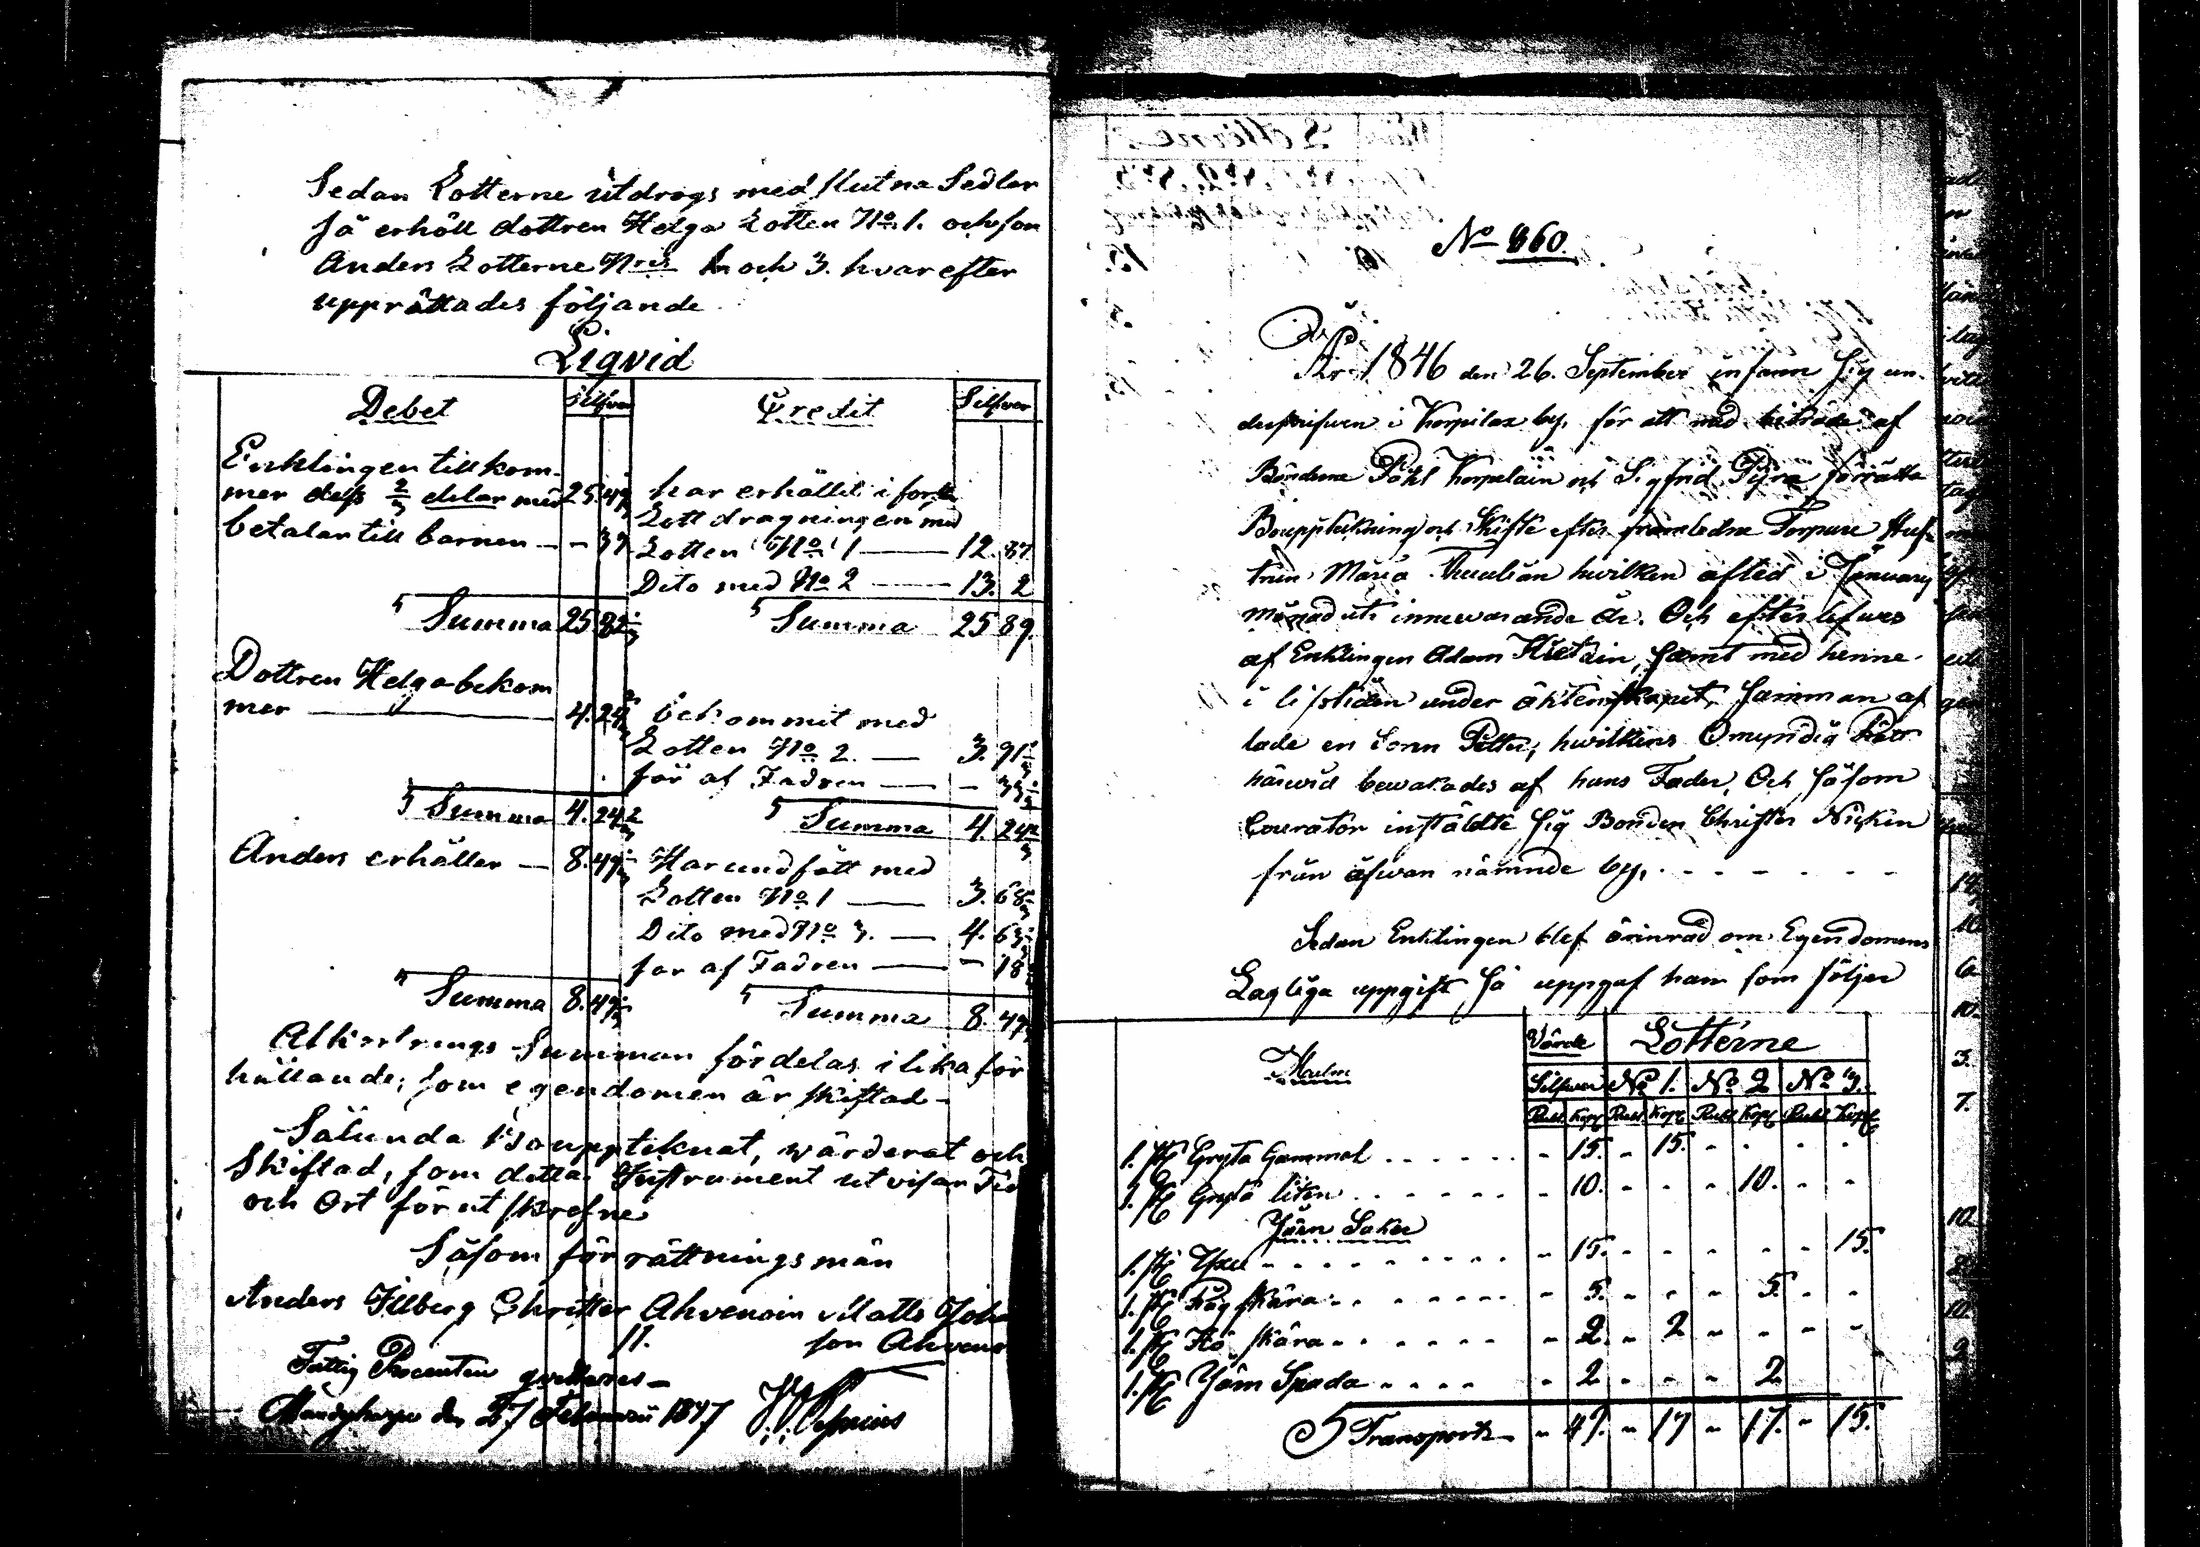 Sedan Lotterne utdrogs med slutna Sedlar
så erhöll dottren Helga Lotten No 1. och son
Anders Lotterne Nris och 3. hvarefter
upprättades följande
Liqvid
Debet Silfver Credit Silfver
Enklingen tillkom-
mer dess 2/3 delar med 25.49 har erhållit i förra
Lott dragningen med
betalar till barnen — - 33 Lotten No 1 — 12. 87
Dito med No 2 — 13. 2
Summa 25 82 Summa 25 89.
Dottren Helga bekom
mer — 4.24 2/3 bekommit med
Lotten No 2. — 3. 91
får af Fadren — - 33
Summa 4.24 2/3 Summa 4.24 2/3
Anders erhåller — 8.49 Har undfått med
Lotten No 1 — 3. 68
Dito med No 3. — 4. 63
får af Fadren — - 18
Summa 8.49 Summa 8. 49
Afkortnings Summan fördelas i lika för
hållande, som egendomen är skiftad -
Sålunda Bouppteknat, wärderat och
Skiftad, som detta Instrument utvisar Tid
och Ort förut skrefne
Såsom förrättningsmän
Anders Illberg Christer Ahvenain Matts Joh
son Ahven
Fattig Procenten
den 27 Februarii 1847
No 860.
År 1846 den 26. September infann sig un-
derskrifven i Korpilax by, för att med biträde af
Bönderne Påhl Korpelain och Sigfrid Pyra förrätta
Bouppteckning och Skifte efter framledne Torpare Hus-
trun Maria hvilken afled i January
månad uti innevarande år. Och efterlefwes
af Enklingen Adam samt med henne
i lifstiden under äktenskapet, samman af
lade en Sonn Petter, hwilkens Omyndig Rätt
härwid bewakades af hans Fader, Och såsom
Courator instälde sig Bonden Christer Nickin
från äfwan nämnde by. - - - - - -
Sedan Enklingen blef örinrad om Egendomens
Lagliga uppgift, så uppgaf han som följer
Malm Värde Lotterne
Silfwer No 1. No 2 No 3.
Rubl Kopf Rubl Kopf Rubl Kopf Rubl Kopf
1. st Gryta Gammal - - - - - - 15. - 15. - - - -
1. st Gryta liten - - - - - - 10. - - - 10. - -
Järn Saker
1. st Yxa - - - - - - - - 15. - - - - - 15.
1. st Råg skära - - - - - - - 5. - - - 5. - -
1. st Hö skära - - - - - - 2. - 2 - - - -
1. st Järn Spada - - - - - 2 - - - 2
Transport - - 49. - 17 - 17. - 15.